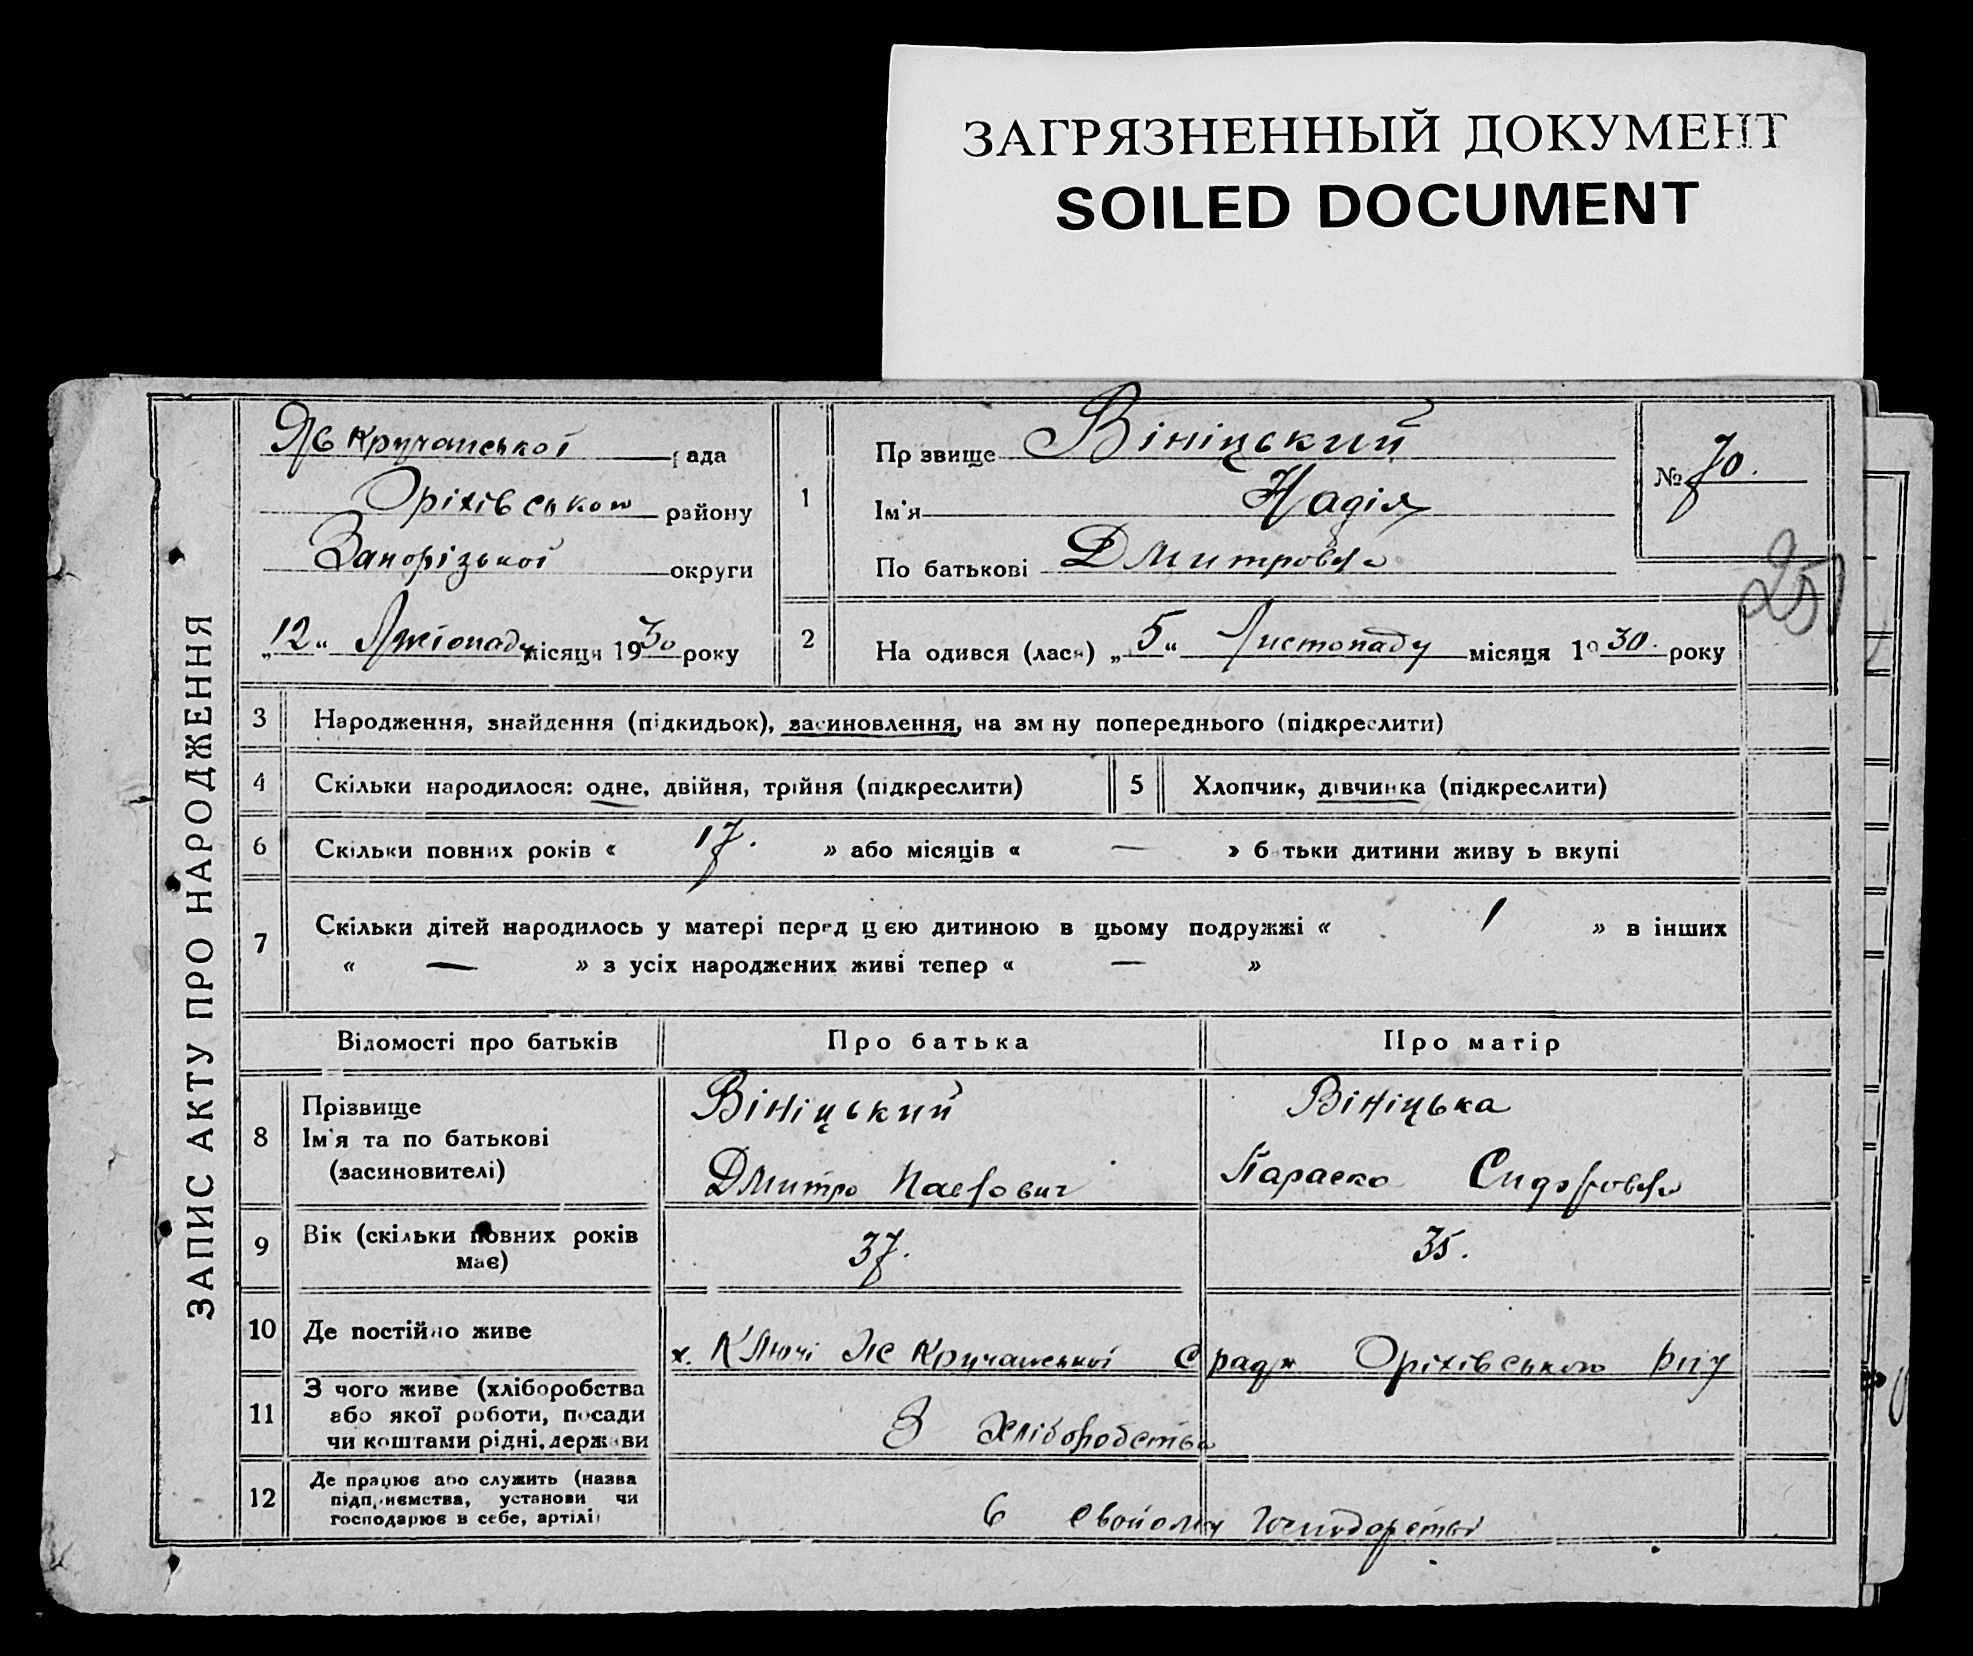 ЗАГРЯЗНЕННЫЙ ДОКУМЕНТ
SOILED DOCUMENT
ЗАПИС АКТУ ПРО НАРОДЖЕННЯ
рада
Оріхівського району
Запорізької округи
„12" Листопаду місяця 1930 року
1
Прзвище Вініцький
Ім'я Надія
По батькові Дмитровна
№ 70.
251
2
На одився (лася) „5" Листопаду місяця 1930. року
3 Народження, знайдення (підкидьок), засиновлення, на зм ну попереднього (підкреслити)
4 Скільки народилося: одне, двійня, трійня (підкреслити)
5 Хлопчик, дівчинка (підкреслити)
6 Скільки повних років « 17. » або місяців « — » б тьки дитини живу ь вкупі
7 Скільки дітей народилось у матері перед цею дитиною в цьому подружжі « 1 » в інших
« — » з усіх народжених живі тепер « — »
Відомості про батьків Про батька Про матір
8
Прізвище Вініцький Вініцька
Ім'я та по батькові
(засиновителі) Дмитро Павлович Параска Сидоровна
9
Вік (скільки повних років
має) 37. 35.
10 Де постійно живе х. Ключі Кручанської С ради Оріхівського
11
З чого живе (хліборобства
або якої роботи, посади
чи коштами рідні, держави
З хліборобства
12
Де працює або служить (назва
підприємства, установи чи
господарює в себе, артілі)
в свойому господарстві